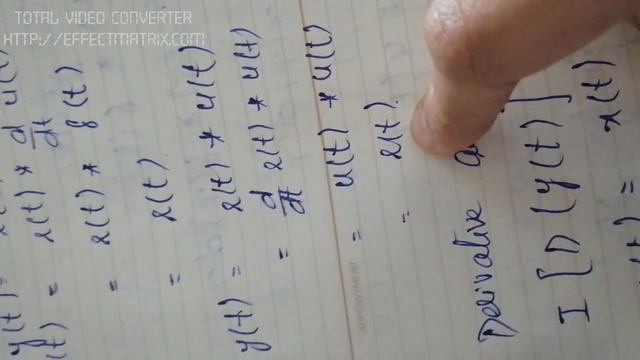 TOTAL VIDEO CONVERTER
HTTP://EFFECTMATRIX.COM
y(t)
(t) = r(t) * d/dt u(t)
= r(t) * δ(t)
= r(t)
y(t) = r(t) * u(t)
= d/dt r(t) * u(t)
= u(t) * u(t)
APPOINTMENT
= r(t).
Derivative
I [D [y(t)]
(t) = x(t)